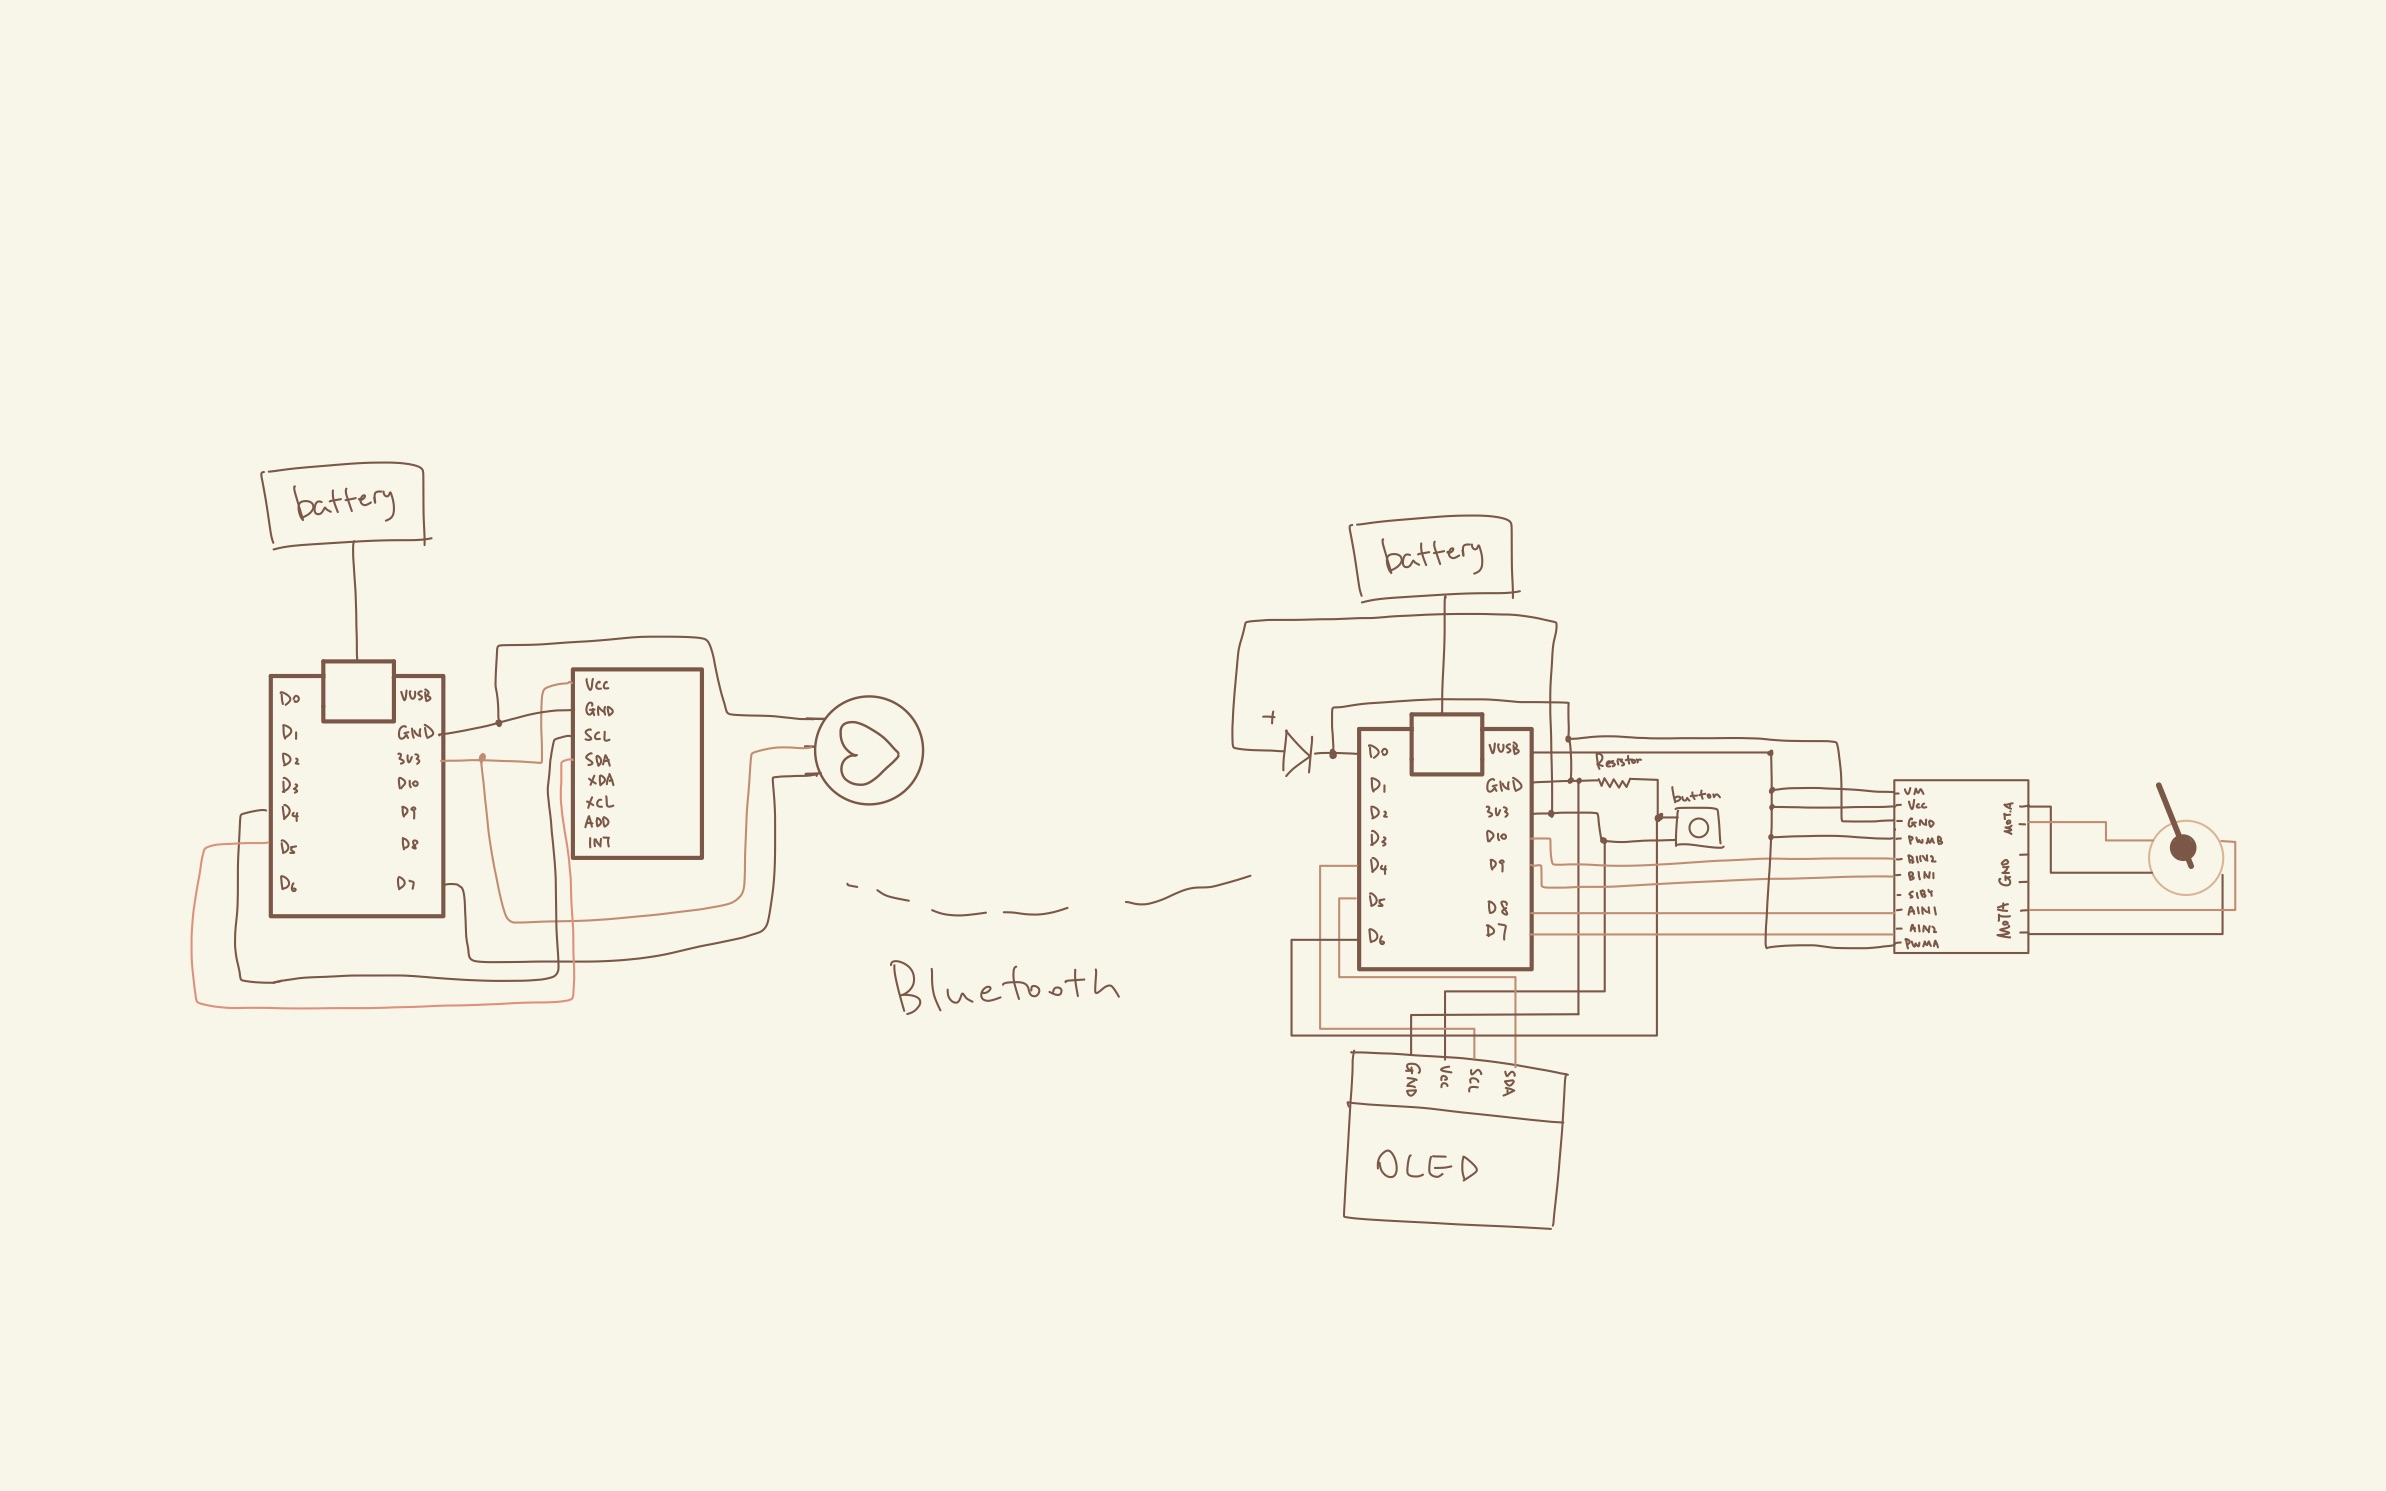 battery
D0
D1
D2
D3
D4
D5
D6
VUSB
GND
3V3
D10
D9
D8
D7
Vcc
GND
SCL
SDA
XDA
XCL
ADD
INT
Bluetooth
battery
+
D0
D1
D2
D3
D4
D5
D6
VUSB
GND
3V3
D10
D9
D8
D7
Resistor
button
VM
Vcc
GND
PWMB
BIN2
BIN1
STBY
AIN1
AIN2
PWMA
MOT.A
GND
MOTA
GND
Vcc
SCL
SDA
OLED